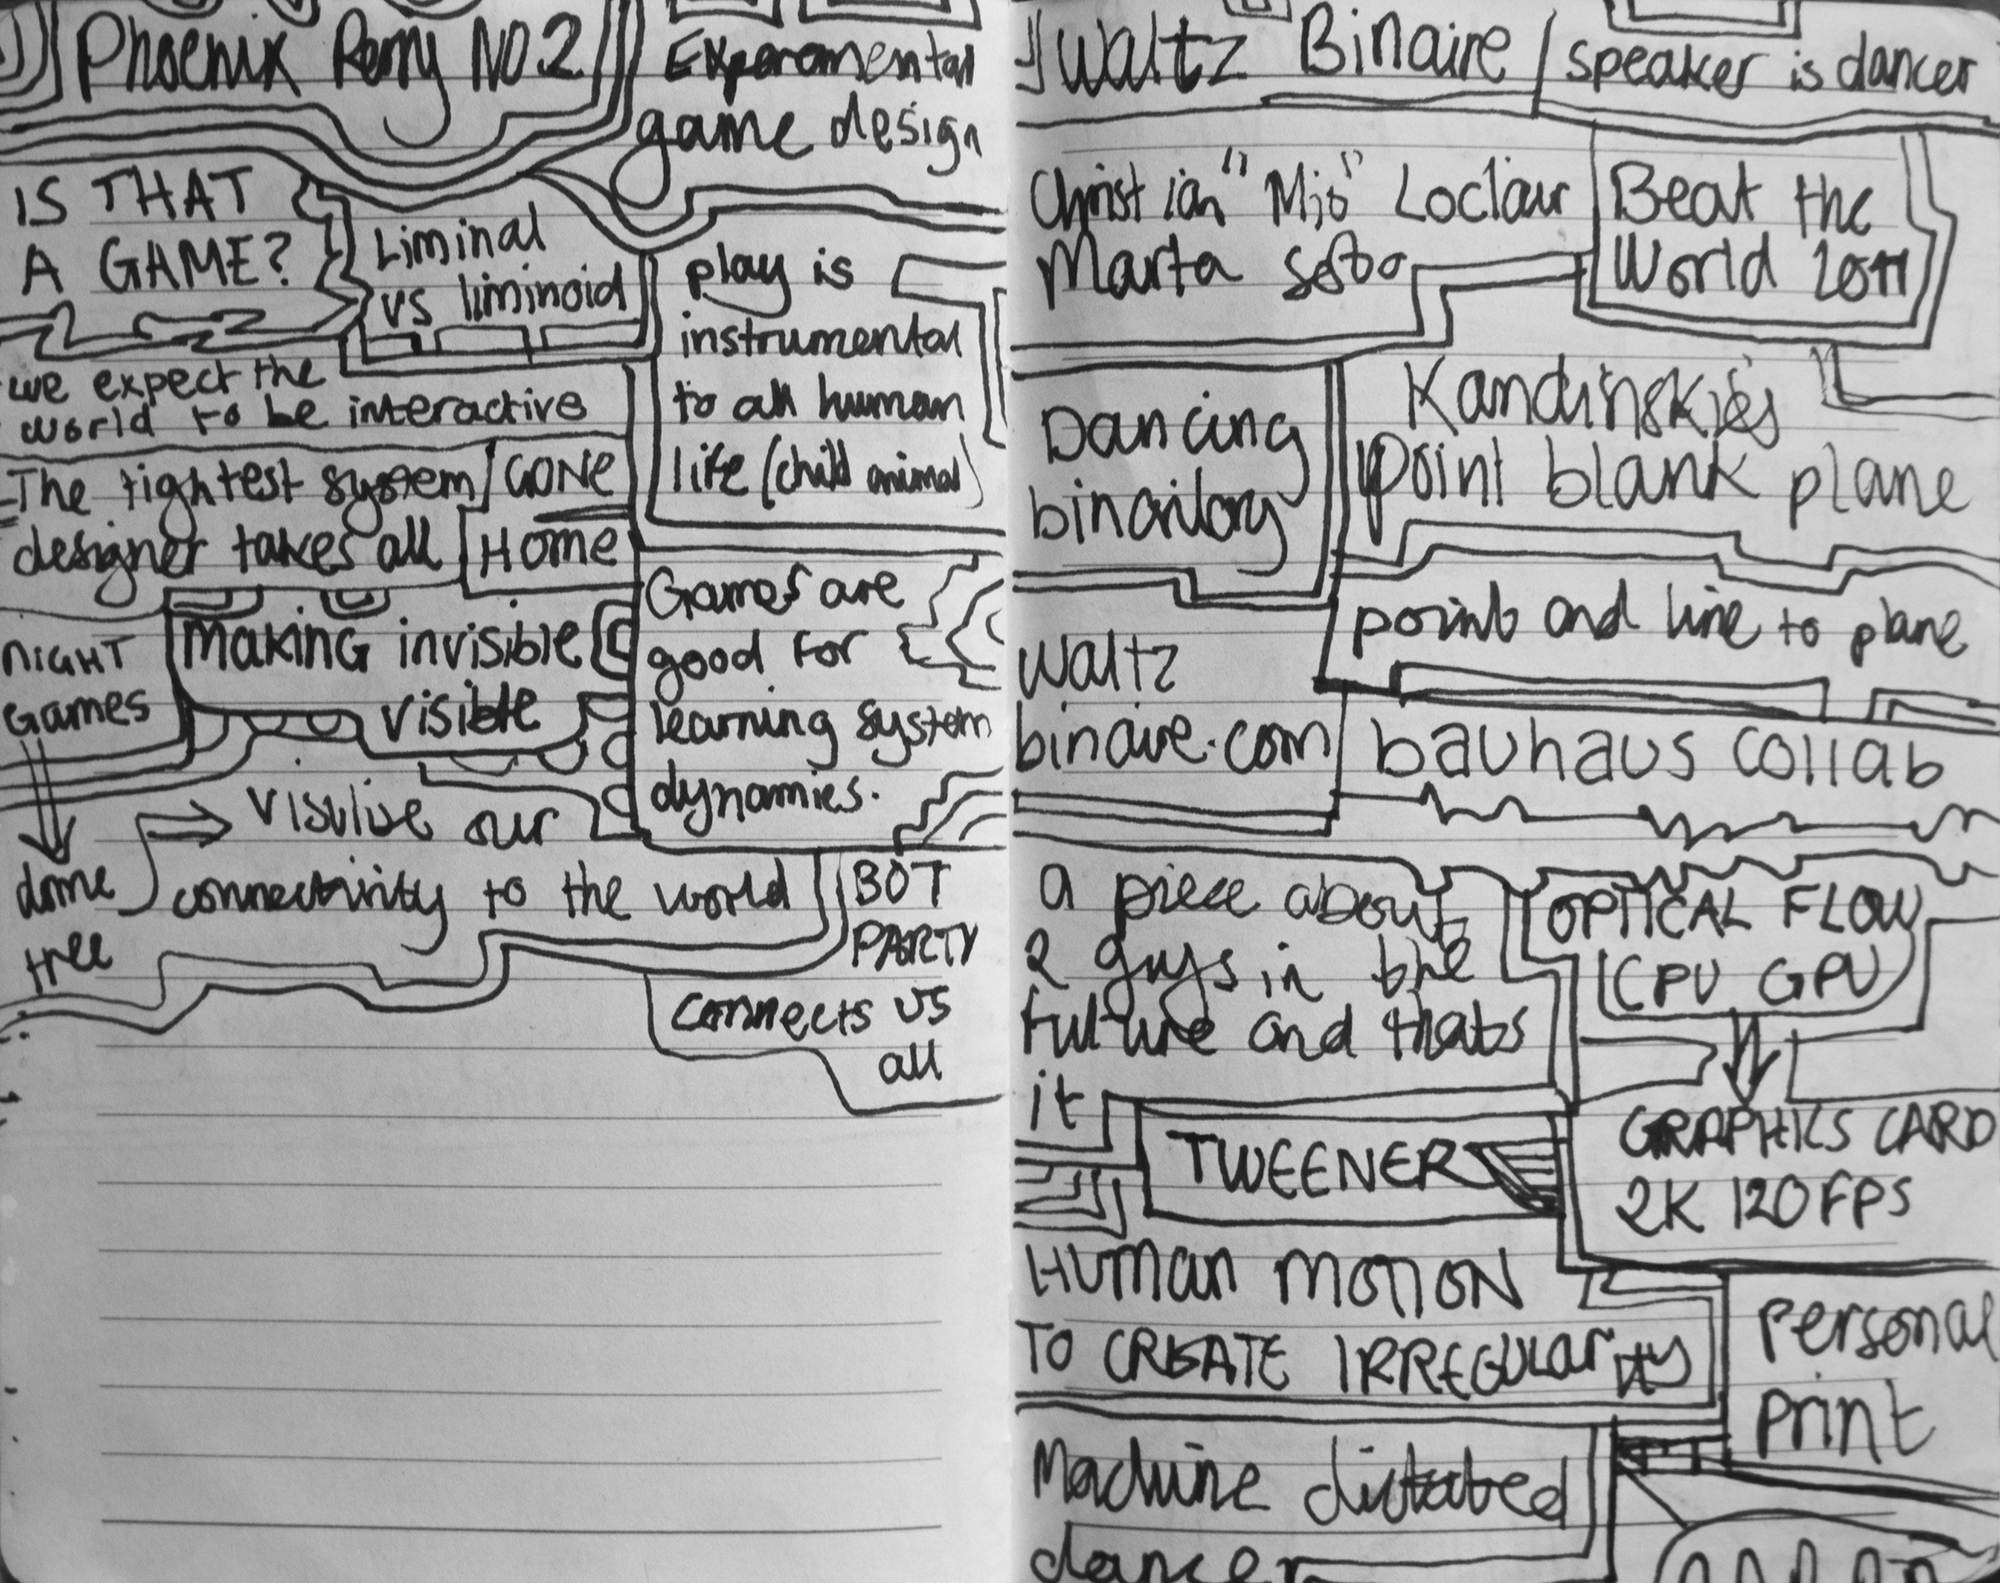 Phoenix Perry NO.2
Experamental
game design
IS THAT
A GAME?
Liminal
vs liminoid
play is
instrumental
to all human
life (child animal)
we expect the
world to be interactive
The tightest system
designer takes all
GONE
HOME
Games are
good for
learning system
dynamics.
NIGHT
Games
making invisible
visible
dome
tree
our
connectivity to the world
BOT
PARTY
connects us
all
Waltz Binaire / speaker is dancer
Christian "Mio" Loclair
Marta
Beat the
World 2011
Dancing
Kandinskies
point blank plane
point and line to plane
waltz
binaire.com
bauhaus collab
a piece about
2 guys in the
future and thats
it
OPTICAL FLOW
CPU GPU
GRAPHICS CARD
2K 120FPS
TWEENER
HUMAN MOTION
TO CREATE IRREGULARITY
personal
print
Machine dictated
dancer